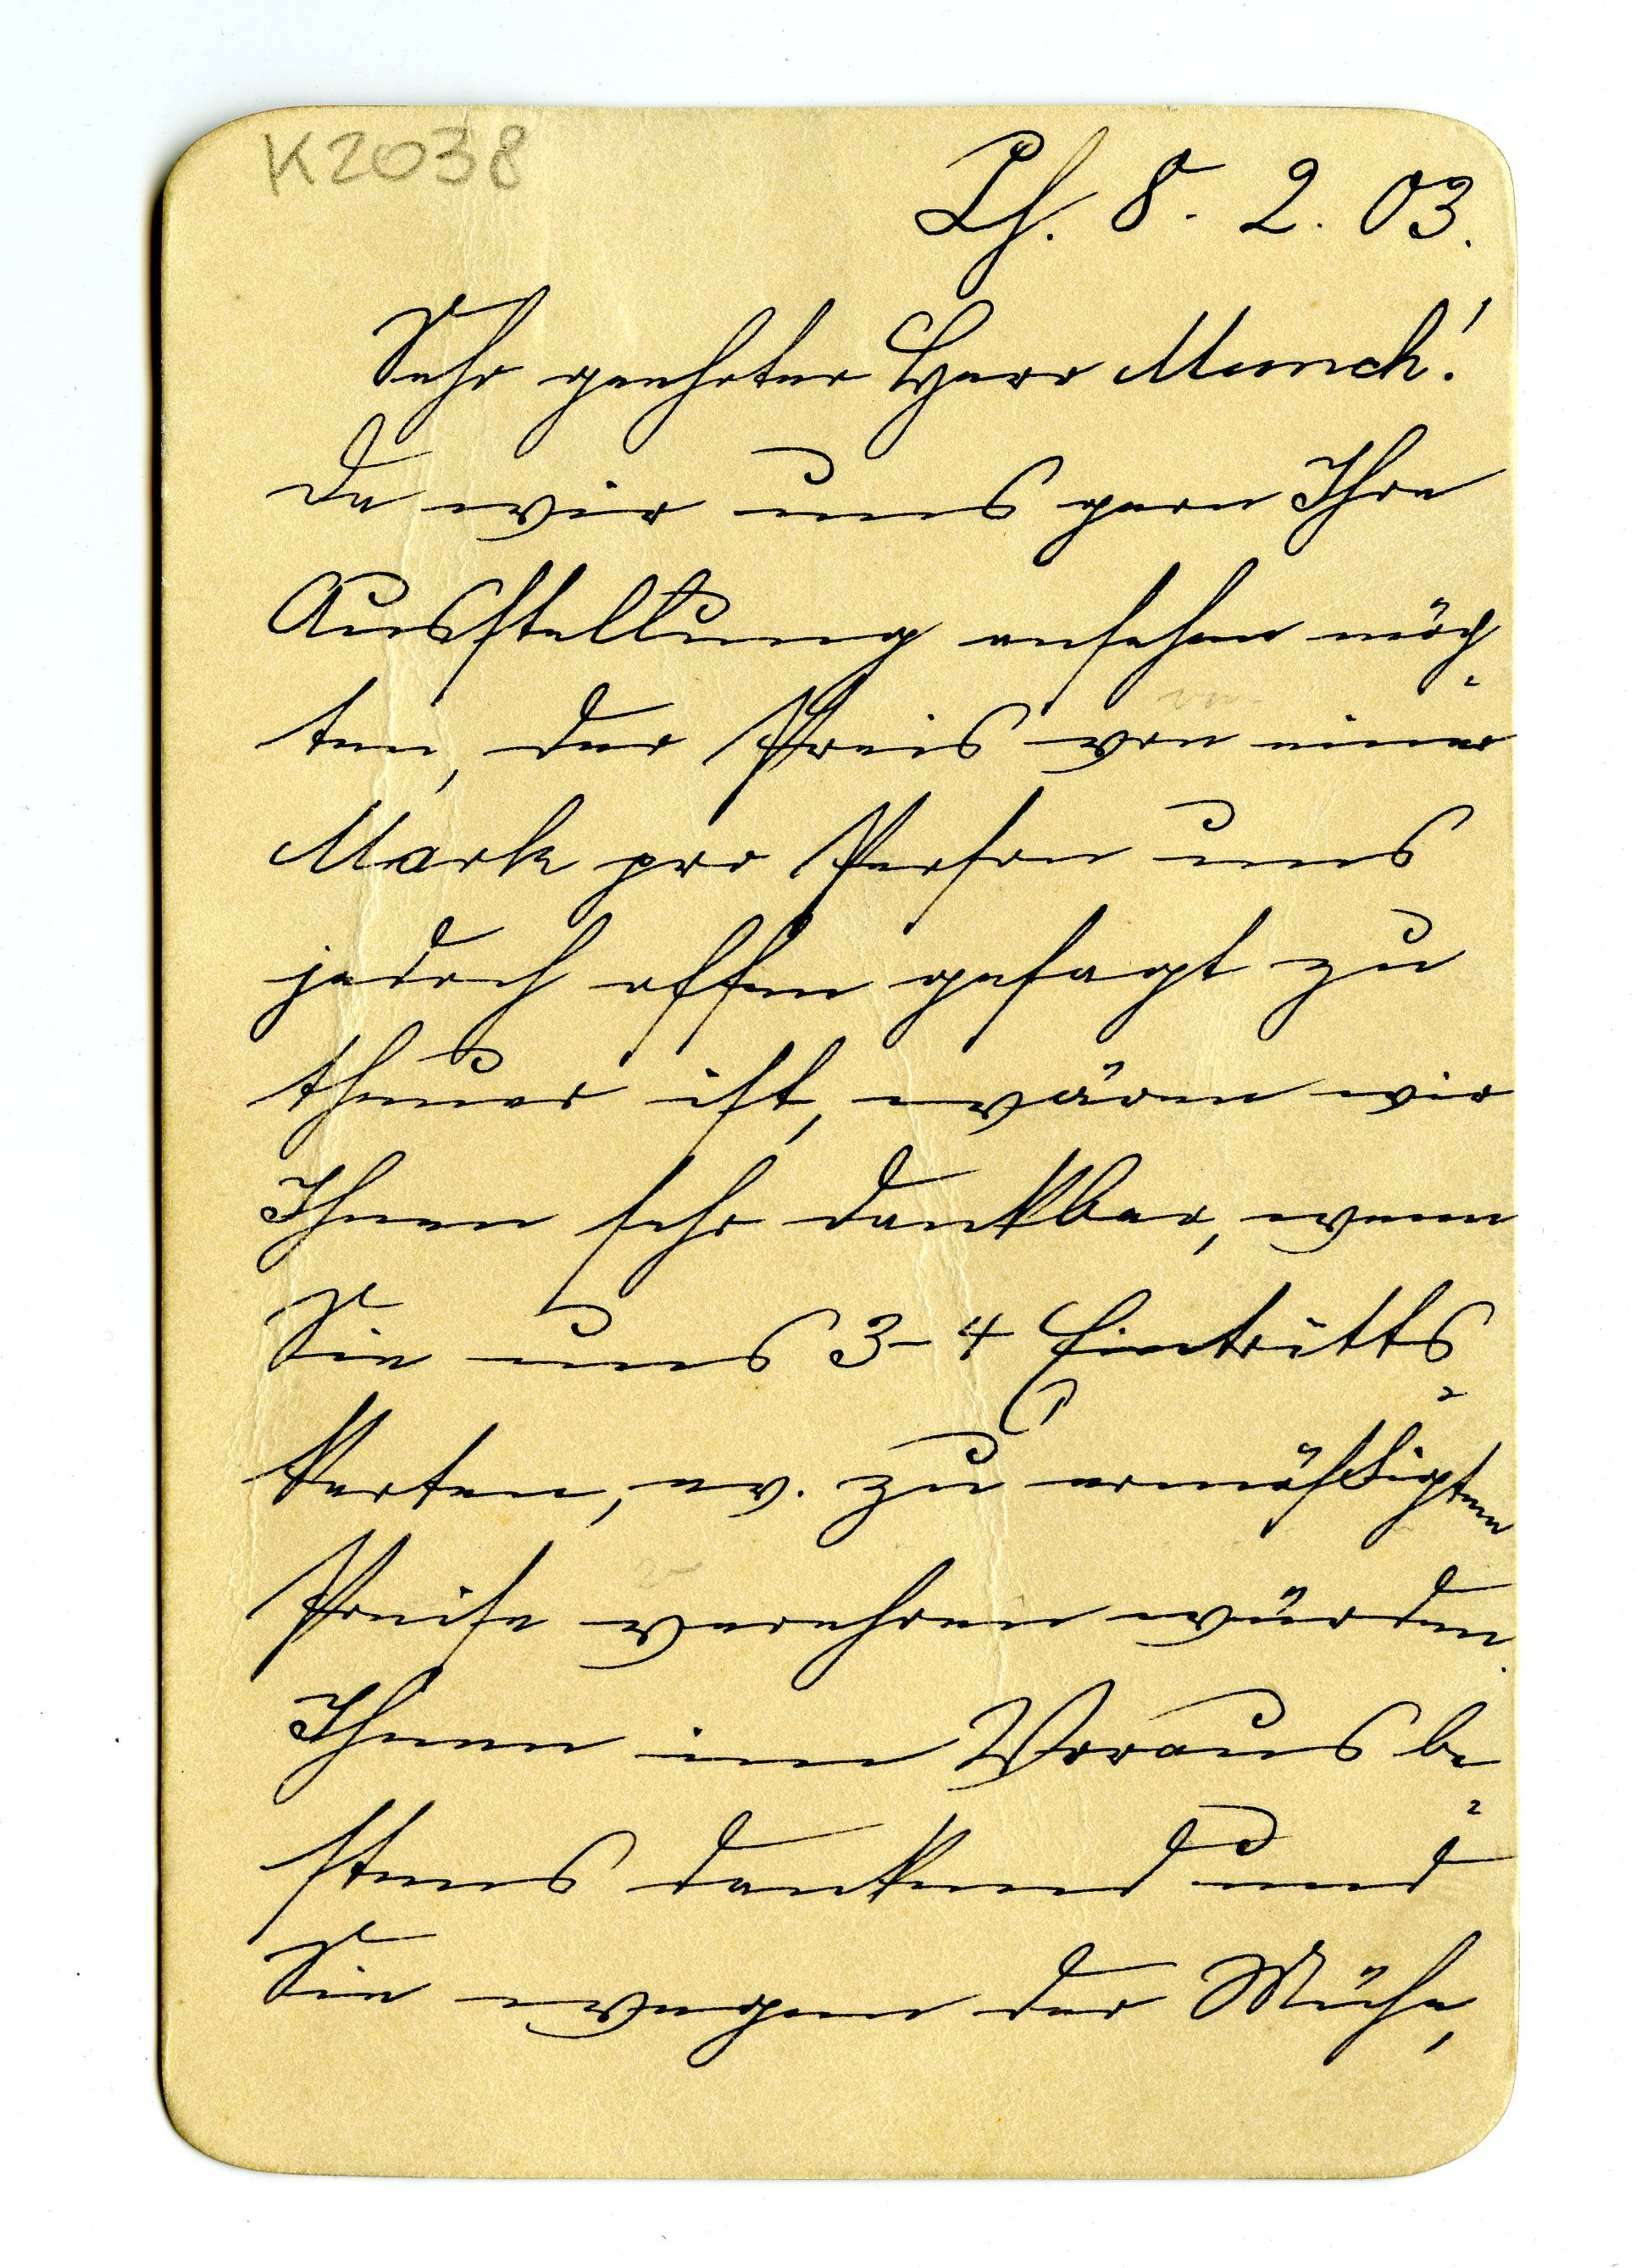 K2038
Lh. 8. 2. 03.
Sehr geehrter Herr Munch!
Da wir uns gern Ihre
Ausstellung ansehen möch-
ten, der Preis von einer
Mark pro Person uns
jedoch offen gesagt zu
theuer ist, wären wir
Ihnen sehr dankbar, wenn
Sie uns 3-4 Eintritts-
karten, ev. zu ermäßigten
Preise verehren würden.
Ihnen im Voraus be-
stens dankend und
Sie wegen der Mühe,